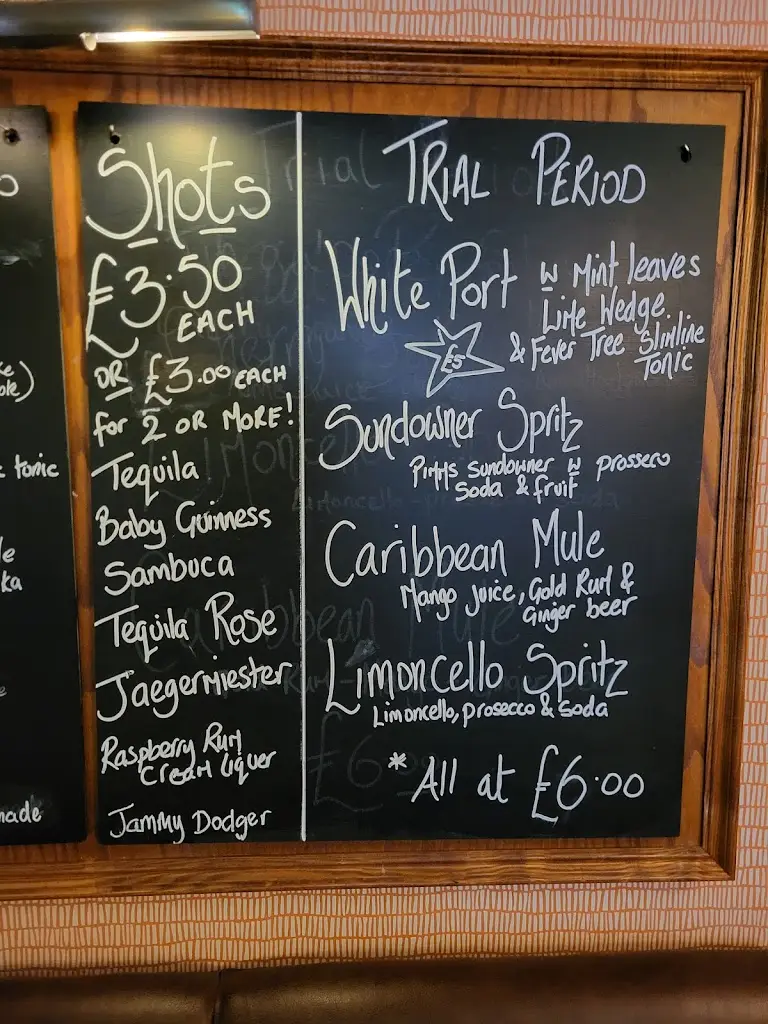 Shots
£3.50
EACH
OR £3.00 EACH
for 2 OR MORE!
Tequila
Baby Guinness
Sambuca
Tequila Rose
Jaegermiester
Raspberry Rum
Cream liquer
Jammy Dodger
TRIAL PERIOD
White Port
£5
w Mint leaves
Lime Wedge
& Fever Tree Slimline
Tonic
Sundowner Spritz
Pimms Sundowner w prossero
Soda & fruit
Caribbean Mule
Mango juice, Gold Rum &
Ginger beer
Limoncello Spritz
Limoncello, prosecco & Soda
* All at £6.00
tonic